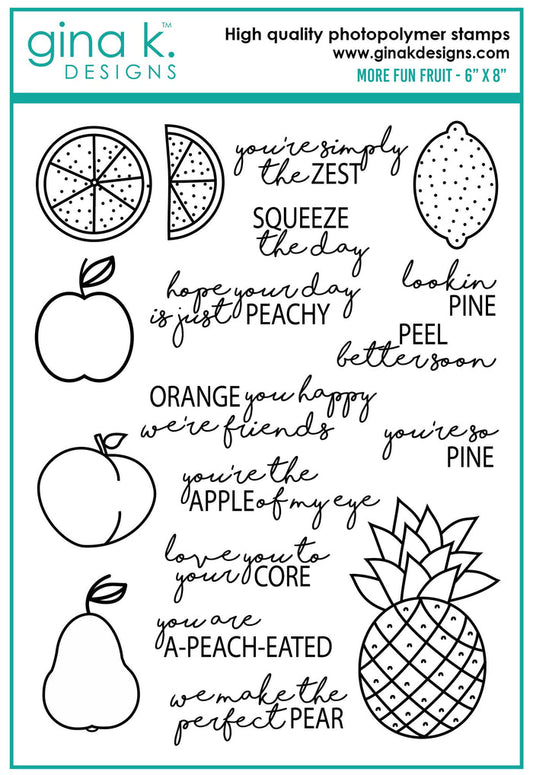 gina k.™
DESIGNS
High quality photopolymer stamps
www.ginakdesigns.com
MORE FUN FRUIT - 6" X 8"
you're simply
the ZEST
SQUEEZE
the day
hope your day
is just PEACHY
lookin
PINE
PEEL
better soon
ORANGE you happy
we're friends
you're so
PINE
you're the
APPLE of my eye
love you to
your CORE
you are
A-PEACH-EATED
we make the
perfect PEAR